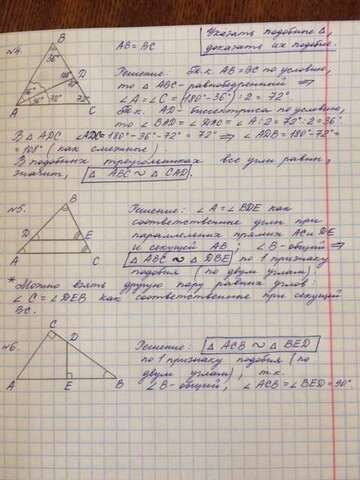 Указать подобные △,
доказать их подобие.
№4.
B
36°
D
108°
72°
36°
36°
72°
72°
A
C
AB = BC
Решение: Т.к. AB = BC по условию,
то △ ABC - равнобедренный ⇒
∠A = ∠C = (180° - 36°) : 2 = 72°
Т.к. AD - биссектриса по условию,
то ∠BAD = ∠DAC = ∠A : 2 = 72° : 2 = 36°
В △ ADC ∠ADC = 180° - 36° - 72° = 72° ⇒ ∠ADB = 180° - 72° =
= 108° (как смежные).
В подобных треугольниках все углы равны,
значит, △ ABC ~ △ CAD.
№5.
B
D
E
A
C
Решение: ∠A = ∠BDE как
соответственные углы при
параллельных прямых AC и DE
и секущей AB; ∠B - общий ⇒
△ ABC ~ △ DBE по 1 признаку
подобия (по двум углам)
* Можно взять другую пару равных углов:
∠C = ∠DEB как соответственные при секущей
BC.
№6.
C
D
A
E
B
Решение: △ ACB ~ △ BED
по 1 признаку подобия (по
двум углам), т.к.
∠B - общий, ∠ACB = ∠BED = 90°